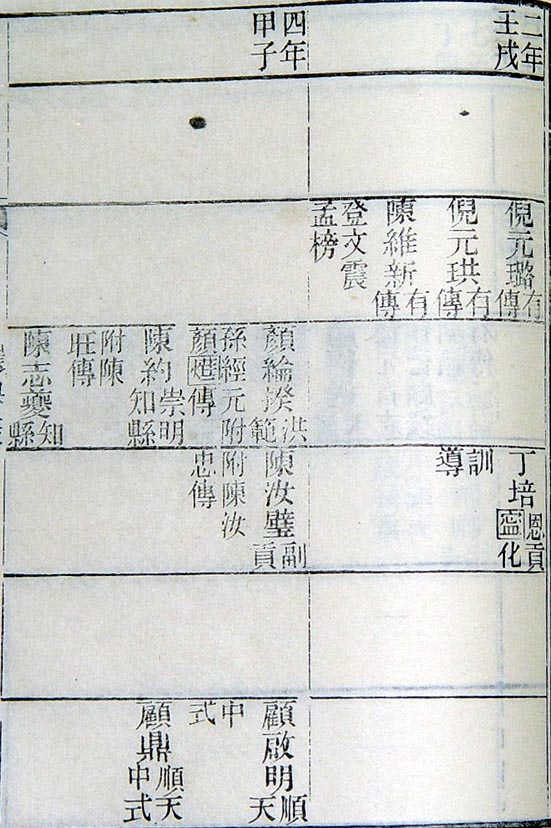 二年
壬戌
倪元璐有傳
倪元珙有傳
陳維新有傳
登文震
孟榜
丁培恩貢
寍化
訓
導
四年
甲子
顏綸揆洪範
孫經元附
顏傳
陳約崇明知縣
附陳
旺傳
陳志夔知縣
陳汝璧副貢
附陳汝
忠傳
顧啟明順天
中
式
顧鼎順天中式